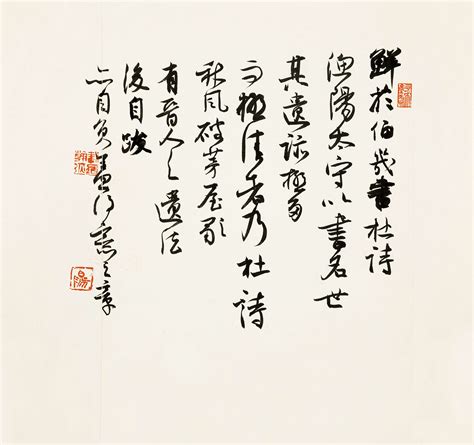 鮮於伯幾書杜詩
漁陽太守以書名世
其遺跡極多
而極佳者乃杜詩
秋風破茅屋歌
有晉人之遺法
後自跋
亦自負蓋得意之章